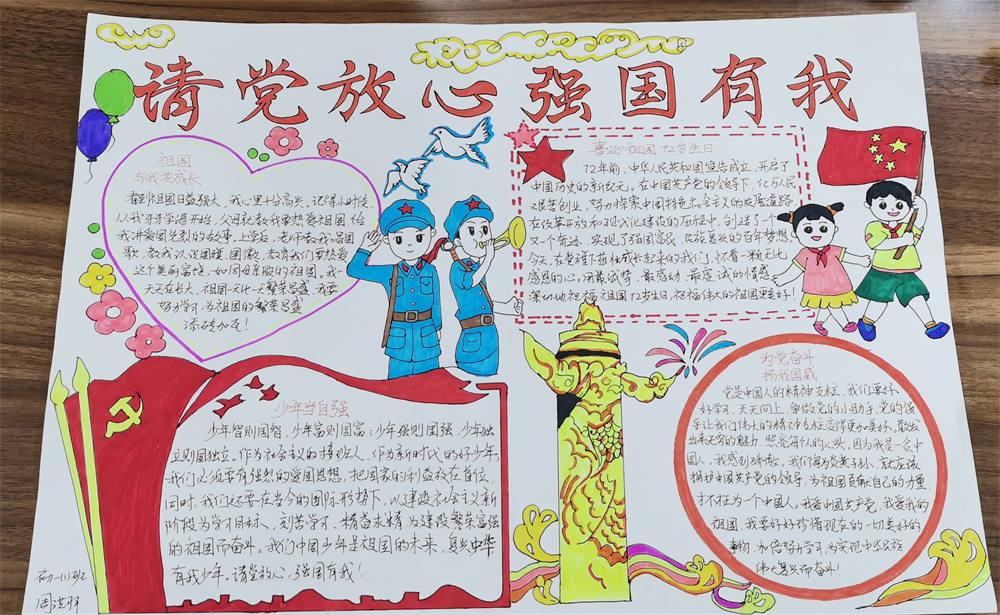 请党放心 强国有我
祖国
与我共成长
看到祖国日益强大，我心里十分高兴，记得小时候，
从我牙牙学语开始，父母就教我要热爱祖国，给
我讲爱国先烈的故事，上学后，老师教我唱国
歌，教我认识国旗，国徽，教育我们要热爱
这个美丽富饶，如同母亲般的祖国，我一
天天在长大，祖国一天比一天繁荣昌盛，我要
努力学习，为祖国的繁荣昌盛
添砖加瓦！
喜迎祖国72岁生日
72年前，中华人民共和国宣告成立，开启了
中国历史的新纪元，在中国共产党的领导下，亿万人民
艰苦创业，努力探索中国特色社会主义的发展道路，
在改革开放和现代化建设的历程中，创造了一个
又一个奇迹，实现了强国富民，民族复兴的百年梦想，
今天，在党旗下茁壮成长起来的我们，怀着一颗无比
感恩的心，用最诚挚、最感动、最虔诚的情感，
深切地祝福祖国72岁生日，祝福伟大的祖国更美好！
少年当自强
少年智则国智，少年富则国富；少年强则国强，少年独
立则国独立，作为社会主义的接班人，作为新时代的好少年，
我们必须要有强烈的爱国思想，把国家的利益放在首位，
同时，我们还要在当今的国际形势下，以建设社会主义新
阶段为学习目标，刻苦学习，精益求精，为建设繁荣富强
的祖国而奋斗。我们中国少年是祖国的未来，复兴中华
有我少年。请党放心，强国有我！
为党奋斗
扬我国威
党是中国人的精神支柱，我们要好
好学习，天天向上，争做党的小助手，党的领
导让我们伟大的精神支柱变得更加美好，散发
出来无穷的魅力，照亮每个人的心头，因为我是一名中
国人，我感到骄傲，我们身为炎黄子孙，就应该
拥护中国共产党的领导，为祖国贡献自己的力量，
才不枉为一个中国人。我爱中国共产党，我爱我的
祖国，我要好好珍惜现在的一切美好的
事物，加倍努力学习，为实现中华民族
伟大复兴而奋斗！
初一(1)班